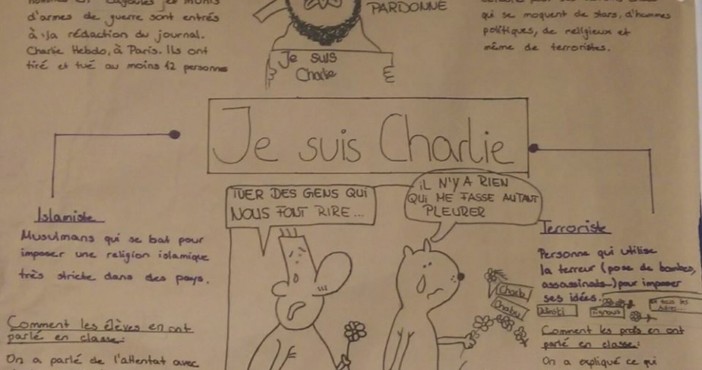 d'armes de guerre sont entrés
à la rédaction du journal
Charlie Hebdo, à Paris. Ils ont
tiré et tué au moins 12 personnes
PARDONNE
Je suis
Charlie
qui se moquent de stars, d'hommes
politiques, de religieux et
même de terroristes.
Je suis Charlie
Islamiste
Musulmans qui se bat pour
imposer une religion islamique
très stricte dans des pays.
Comment les élèves en ont
parlé en classe:
On a parlé de l'attentat avec
TUER DES GENS QUI
NOUS FONT RIRE...
IL N'Y A RIEN
QUI ME FASSE AUTANT
PLEURER
Charb
Terroriste
Personne qui utilise
la terreur (pose de bombes,
assassinats) pour imposer
ses idées.
Comment les profs en ont
parlé en classe:
On a expliqué ce qui